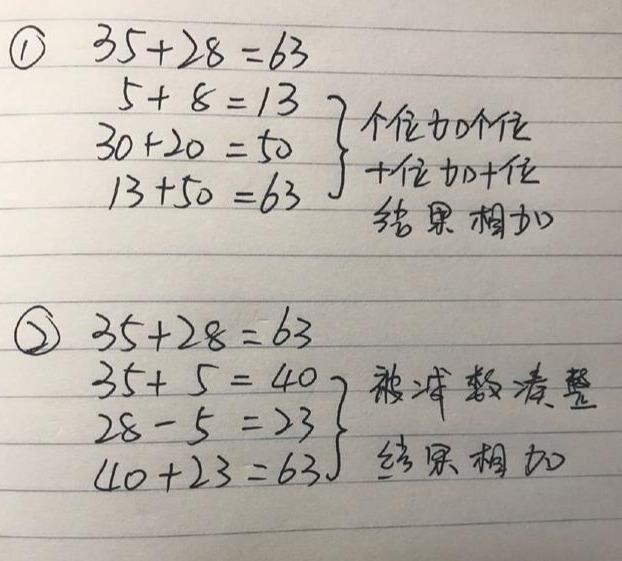 ① 35+28=63
5+8=13
30+20=50
13+50=63
个位加个位
十位加十位
结果相加
② 35+28=63
35+5=40
28-5=23
40+23=63
被减数凑整
结果相加